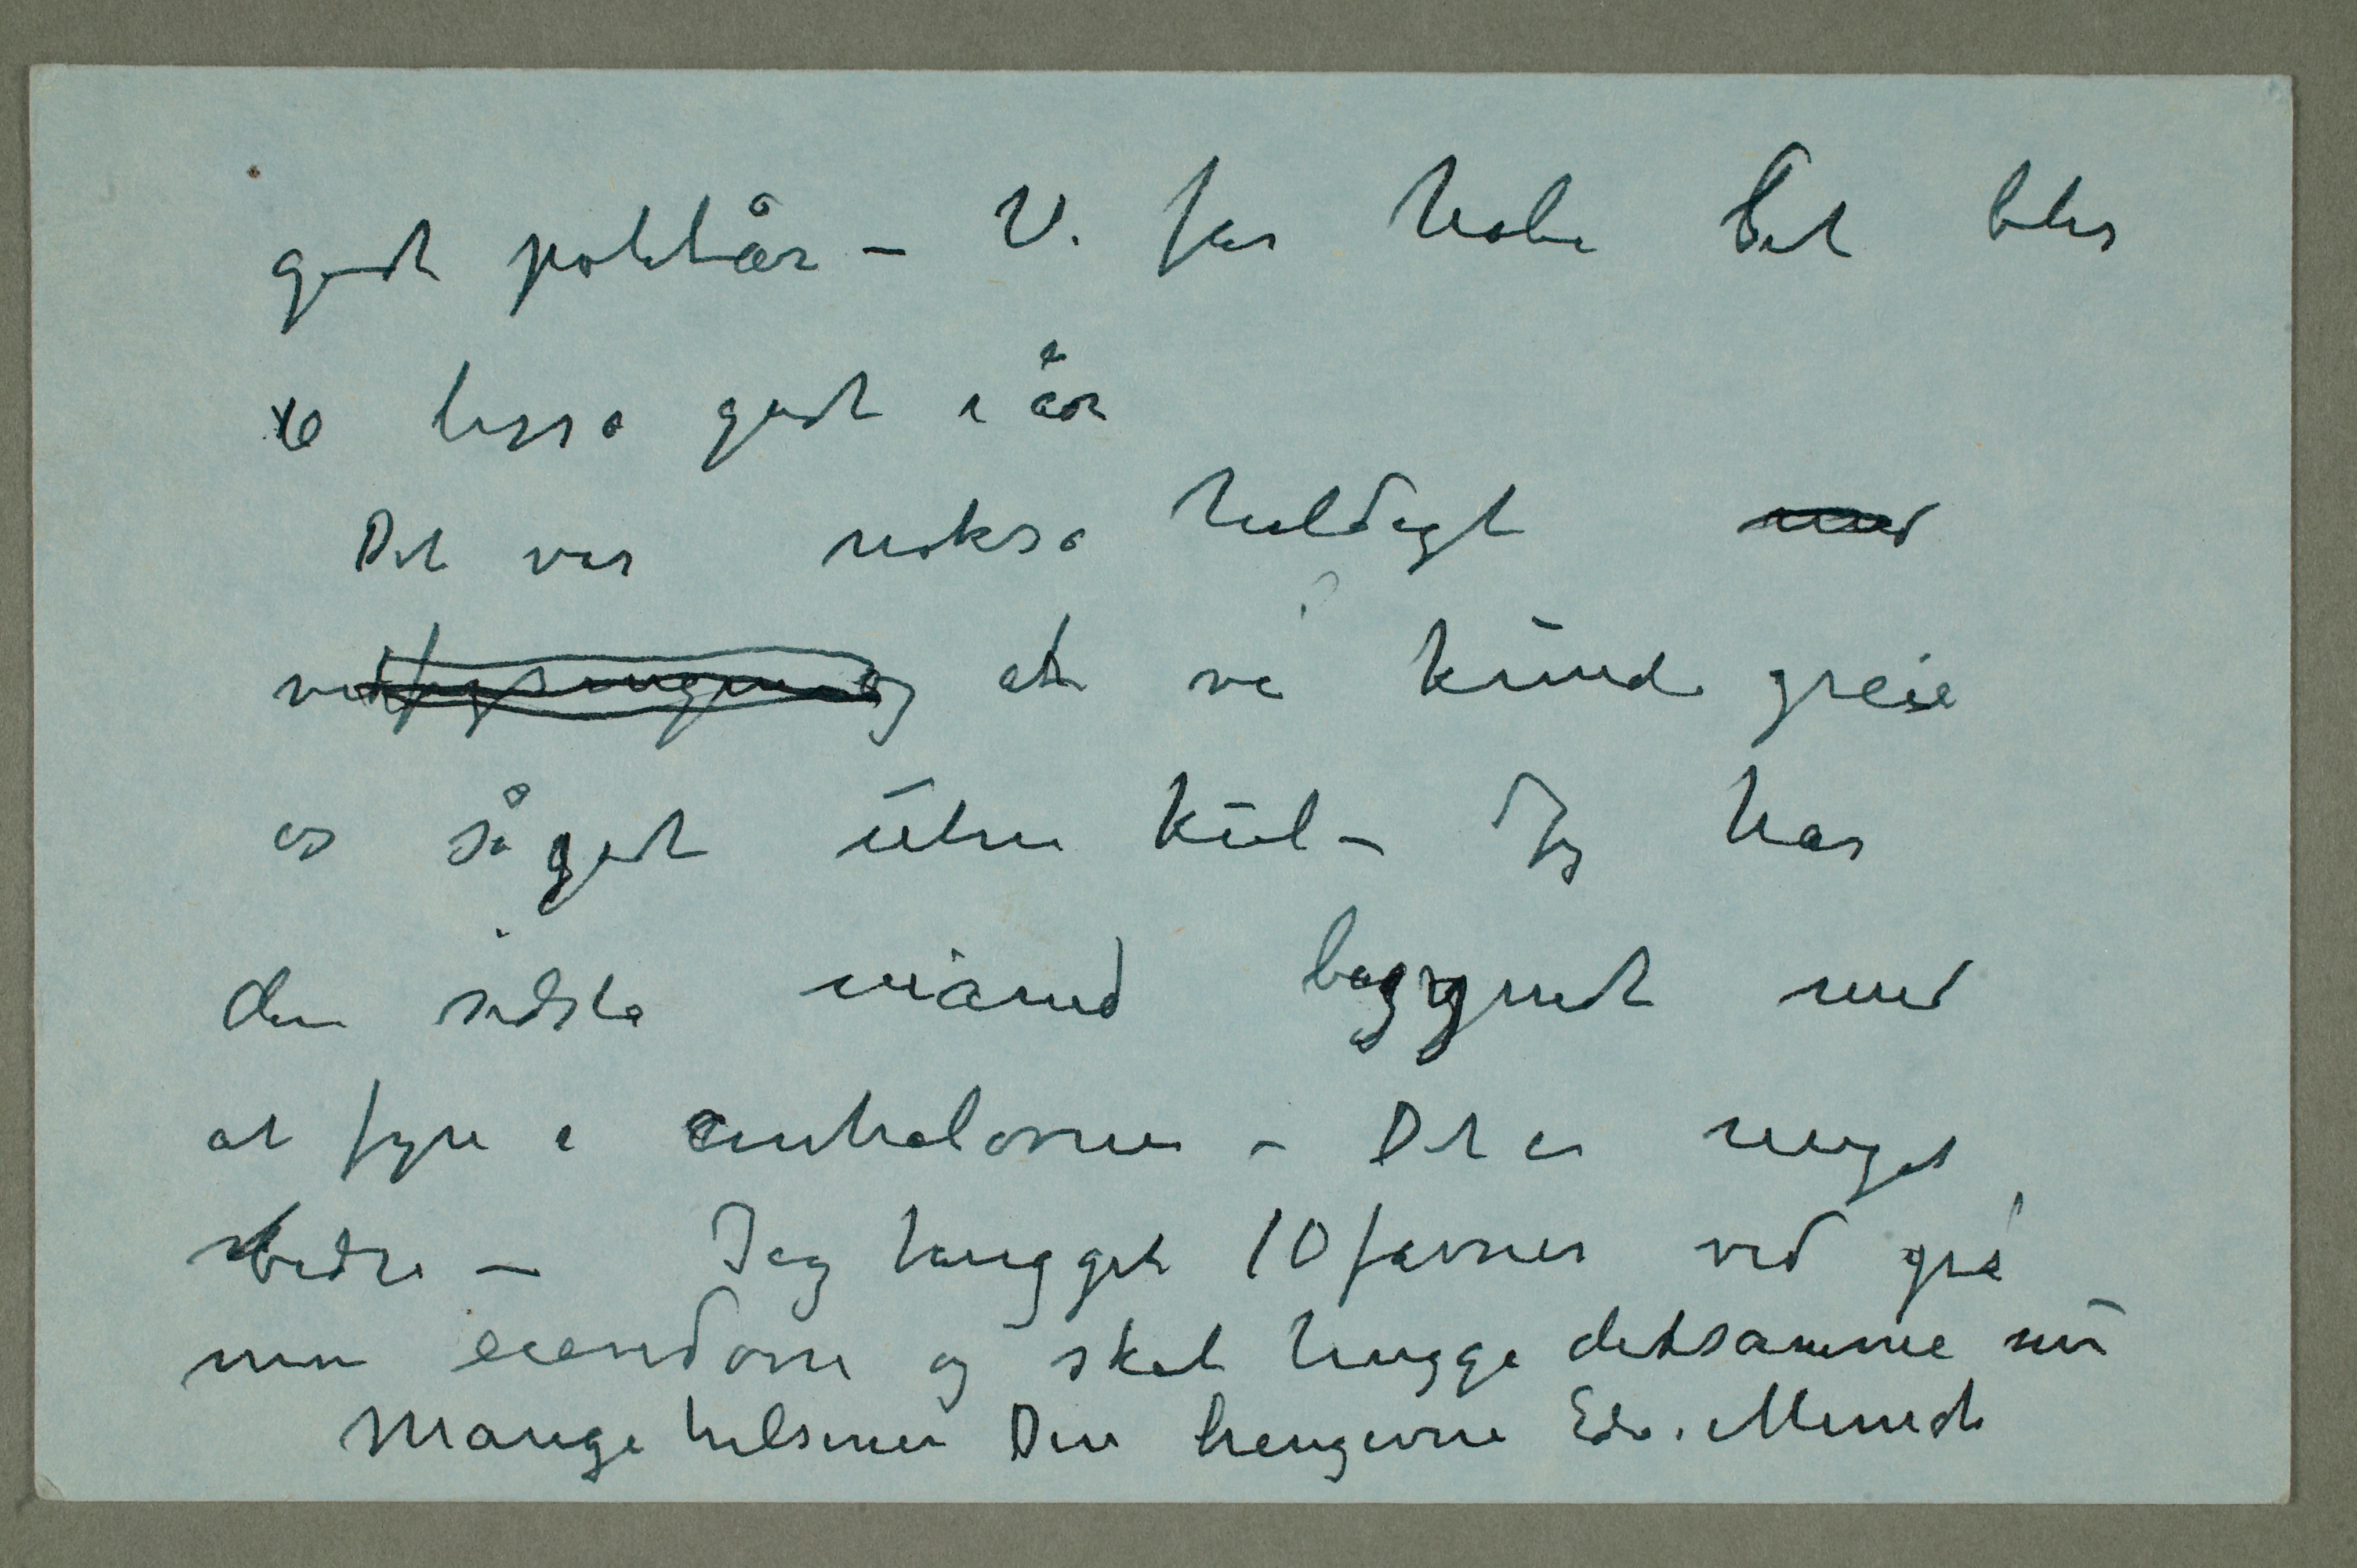 godt potetår – Vi får håbe det blir
lisså godt i år
Det var nokså heldigt med
vedfyringen og at vi kunde greie
os så godt uten kul – Jeg har
den sidste måned begyndt med
at fyre i centralovnen – Det er meget
bedre – Jeg hugget 10 favner ved på
min eiendom og skal hugge detsamme nu
Mange hilsener Din hengivne Edv. Munch